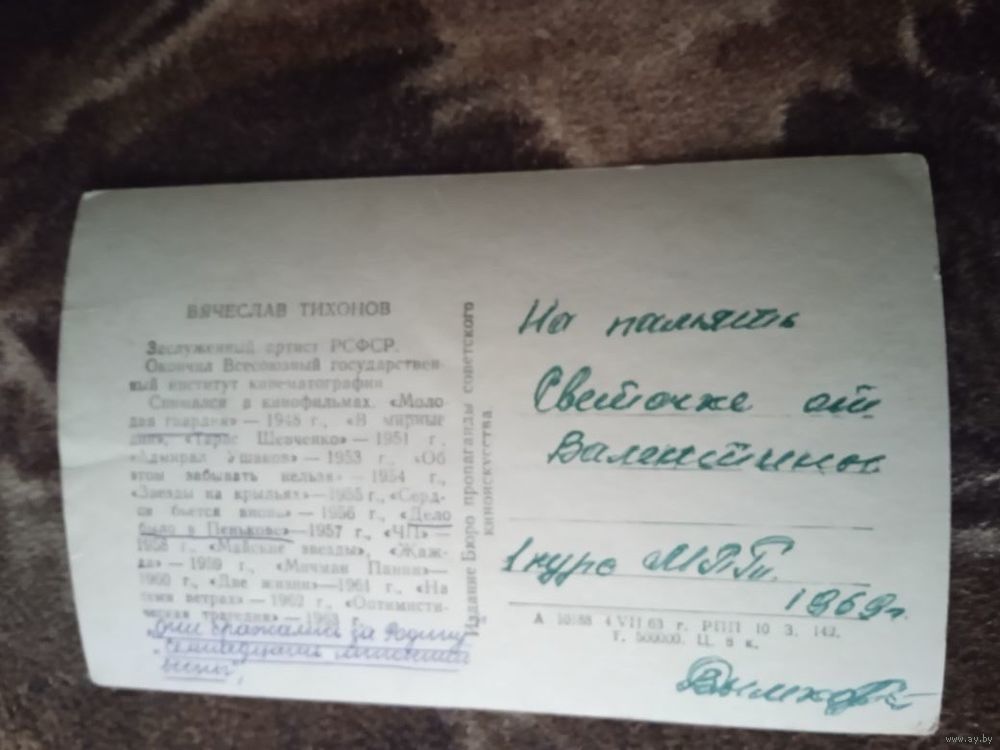 ВЯЧЕСЛАВ ТИХОНОВ
Заслуженный артист РСФСР.
Окончил Всесоюзный государствен-
ный институт кинематографии
Снимался в кинофильмах: «Моло-
дая гвардия» — 1948 г., «В мирные
дни», «Тарас Шевченко» — 1951 г.,
«Адмирал Ушаков» — 1953 г., «Об
этом забывать нельзя» — 1954 г.,
«Звезды на крыльях» — 1955 г., «Серд-
це бьется вновь» — 1956 г., «Дело
было в Пенькове» — 1957 г., «ЧП» —
1958 г., «Майские звезды», «Жаж-
да» — 1959 г., «Мичман Панин» —
1960 г., «Две жизни» — 1961 г., «На
семи ветрах» — 1962 г., «Оптимисти-
ческая трагедия» — 1963 г.
"Они сражались за Родину"
"Семнадцать мгновений
весны",
Издание Бюро пропаганды советского
киноискусства.
На память
Светочке от
Валентины
1 курс
1969г.
А 10188 4 VII 63 г. РПП 10 З. 142.
Т. 500000. Ц. 8 к.
www.ay.by